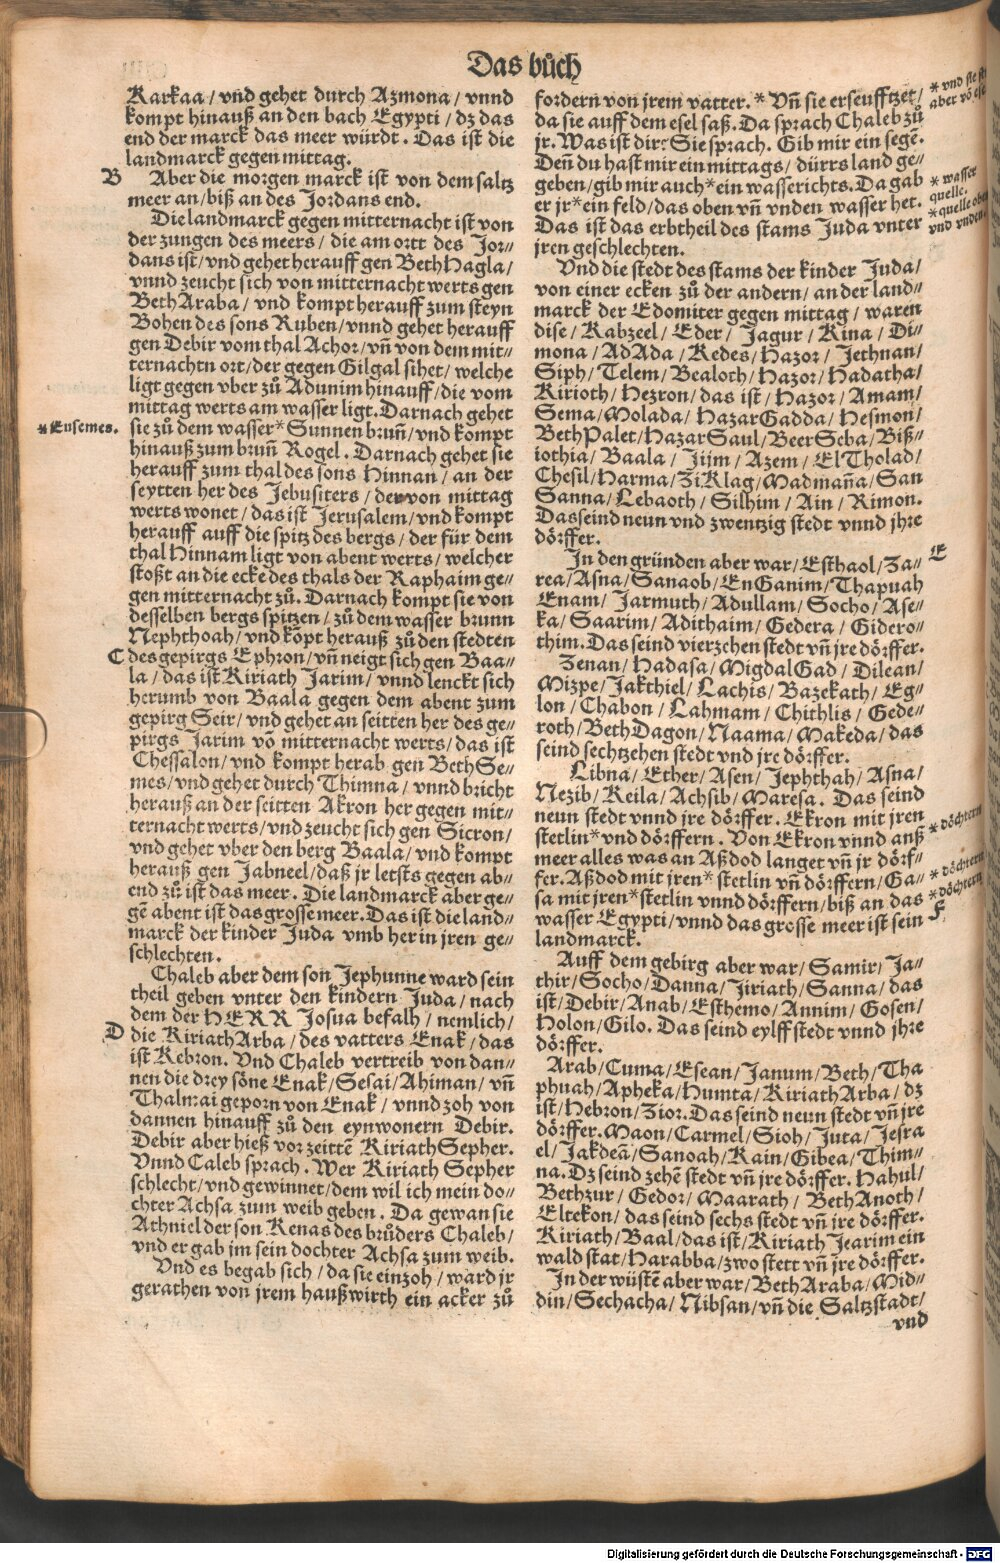 Das bůch
Karkaa / vnd gehet durch Azmona / vnnd
kompt hinauß an den bach Egypti / dz das
end der marck das meer würdt. Das ist die
landmarck gegen mittag.
B
Aber die morgen marck ist von dem saltz
meer an / biß an des Jordans end.
Die landmarck gegen mitternacht ist von
der zungen des meers / die am ortt des Jor⸗
dans ist / vnd gehet herauff gen BethHagla /
vnnd zeucht sich von mitternacht werts gen
BethAraba / vnd kompt herauff zum steyn
Bohen des sons Ruben / vnnd gehet herauff
gen Debir vom thal Achor / vñ von dem mit⸗
ternachtn ort / der gegen Gilgal sihet / welche
ligt gegen vber zů Adunim hinauff / die vom
mittag werts am wasser ligt. Darnach gehet
*Ensemes.
sie zů dem wasser* Sunnen brunñ / vnd kompt
hinauß zum brunñ Rogel. Darnach gehet sie
herauff zum thal des sons Hinnan / an der
seytten her des Jebusiters / der von mittag
werts wonet / das ist Jerusalem / vnd kompt
herauff auff die spitz des bergs / der für dem
thal Hinnam ligt von abent werts / welcher
stoßt an die ecke des thals der Raphaim ge⸗
gen mitternacht zů. Darnach kompt sie von
desselben bergs spitzen / zů dem wasser brunn
Nephthoah / vnd kõpt herauß zů den stedten
C
des gepirgs Ephron / vñ neigt sich gen Baa⸗
la / das ist Kiriath Jarim / vnnd lenckt sich
herumb von Baala gegen dem abent zum
gepirg Seir / vnd gehet an seitten her des ge⸗
pirgs Jarim võ mitternacht werts / das ist
Chessalon / vnd kompt herab gen BethSe⸗
mes / vnd gehet durch Thimna / vnnd bricht
herauß an der seitten Akron her gegen mit⸗
ternacht werts / vnd zeucht sich gen Sicron /
vnd gehet vber den berg Baala / vnd kompt
herauß gen Jabneel / daß jr letsts gegen ab⸗
end zů ist das meer. Die landmarck aber ge⸗
gẽ abent ist das grosse meer. Das ist die land⸗
marck der kinder Juda vmb her in jren ge⸗
schlechten.
Chaleb aber dem son Jephunne ward sein
theil geben vnter den kindern Juda / nach
dem der HERR Josua befalh / nemlich /
D
die KiriathArba / des vatters Enak / das
ist Kebron. Vnd Chaleb vertreib von dan⸗
nen die drey söne Enak / Sesai / Ahiman / vñ
Thalmai geporn von Enak / vnnd zoh von
dannen hinauff zů den eynwonern Debir.
Debir aber hieß vor zeittẽ KiriathSepher.
Vnnd Caleb sprach. Wer Kiriath Sepher
schlecht / vnd gewinnet / dem wil ich mein do⸗
chter Achsa zum weib geben. Da gewan sie
Athniel der son Kenas des brůders Chaleb /
vnd er gab jm sein dochter Achsa zum weib.
Vnd es begab sich / da sie einzoh / ward jr
gerathen von jrem haußwirth ein acker zů
fordern von jrem vatter. * Vñ sie erseufftzet /
da sie auff dem esel saß. Da sprach Chaleb zů
jr. Was ist dir? Sie sprach. Gib mir ein segẽ.
Deñ du hast mir ein mittags / dürrs land ge⸗
geben / gib mir auch* ein wasserichts. Da gab
er jr* ein feld / das oben vñ vnden wasser het.
Das ist das erbtheil des stams Juda vnter
jren geschlechten.
* vnd sie
aber võ esel
* wasser
quelle.
* quelle oben
vnd vnden.
Vnd die stedt des stams der kinder Juda /
von einer ecken zů der andern / an der land⸗
marck der Edomiter gegen mittag / waren
dise / Kabzeel / Eder / Jagur / Kina / Di⸗
mona / AdAda / Kedes / Hazor / Jethnan /
Siph / Telem / Bealoth / Hazor / Hadatha /
Kirioth / Hezron / das ist / Hazor / Amam /
Sema / Molada / HazarGadda / Hesmon /
BethPalet / HazarSaul / BeerSeba / Biß⸗
iothia / Baala / Jijm / Azem / ElTholad /
Chesil / Harma / ZiKlag / Madmaña / San
Sanna / Lebaoth / Silhim / Ain / Rimon.
Das seind neun vnd zwentzig stedt vnnd jhre
dörffer.
E
In den gründen aber war / Esthaol / Za⸗
rea / Asna / Sanaob / EnGanim / Thapuah
Enam / Jarmuth / Adullam / Socho / Ase⸗
ka / Saarim / Adithaim / Gedera / Gidero⸗
thim. Das seind vierzehen stedt vñ jre dörffer.
Zenan / Hadasa / MigdalGad / Dilean /
Mizpe / Jakthiel / Lachis / Bazekath / Eg⸗
lon / Chabon / Lahmam / Chithlis / Gede⸗
roth / BethDagon / Naama / Makeda / das
seind sechtzehen stedt vnd jre dörffer.
Libna / Ether / Asen / Jephthah / Asna /
Nezib / Keila / Achsib / Maresa. Das seind
neun stedt vnnd jre dörffer. Ekron mit jren
stetlin* vnd dörffern. Von Ekron vnnd anß
meer alles was an Aßdod langet vñ jr dörf⸗
fer. Aßdod mit jren* stetlin vñ dörffern / Ga⸗
sa mit jren* stetlin vnnd dörffern / biß an das
wasser Egypti / vnnd das grosse meer ist sein
landmarck.
* döchtern
* döchtern
* döchtern
F
Auff dem gebirg aber war / Samir / Ja⸗
thir / Socho / Danna / Jiriath / Sanna / das
ist / Debir / Anab / Esthemo / Annim / Gosen /
Holon / Gilo. Das seind eylff stedt vnnd jhre
dörffer.
Arab / Cuma / Esean / Janum / Beth / Tha
phuah / Apheka / Humta / KiriathArba / dz
ist / Hebron / Zior. Das seind neun stedt vñ jre
dörffer. Maon / Carmel / Sioh / Juta / Jesra
el / Jakdeã / Sanoah / Kain / Gibea / Thim⸗
na. Dz seind zehẽ stedt vñ jre dörffer. Hahul /
Bethzur / Gedor / Maarath / BethAnoth /
Eltekon / das seind sechs stedt vñ jre dörffer.
Kiriath / Baal / das ist / Kiriath Jearim ein
wald stat / Harabba / zwo stett vñ jre dörffer.
In der wüstẽ aber war / BethAraba / Mid⸗
din / Sechacha / Nibsan / vñ die Saltzstadt /
vnd
Digitalisierung gefördert durch die Deutsche Forschungsgemeinschaft - DFG